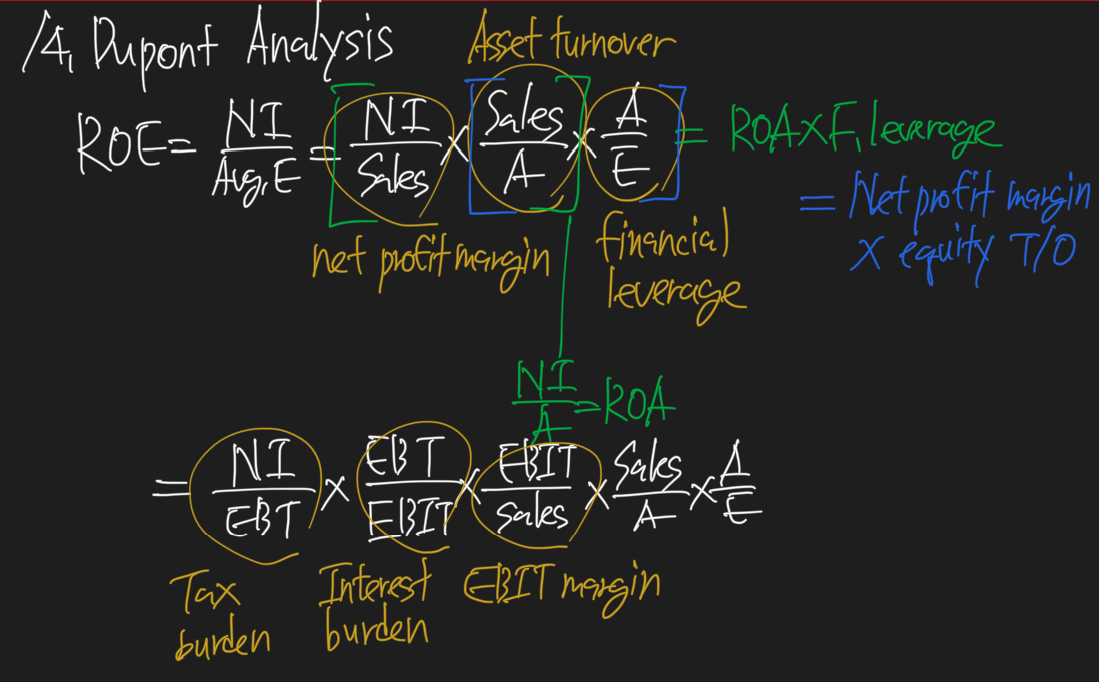 14. Dupont Analysis
Asset turnover
ROE = NI / Avg. E = NI / Sales × Sales / A × A / E = ROA × F. leverage
= Net profit margin
× equity T/O
net profit margin
financial
leverage
NI / A = ROA
= NI / EBT × EBT / EBIT × EBIT / Sales × Sales / A × A / E
Tax
burden
Interest
burden
EBIT margin